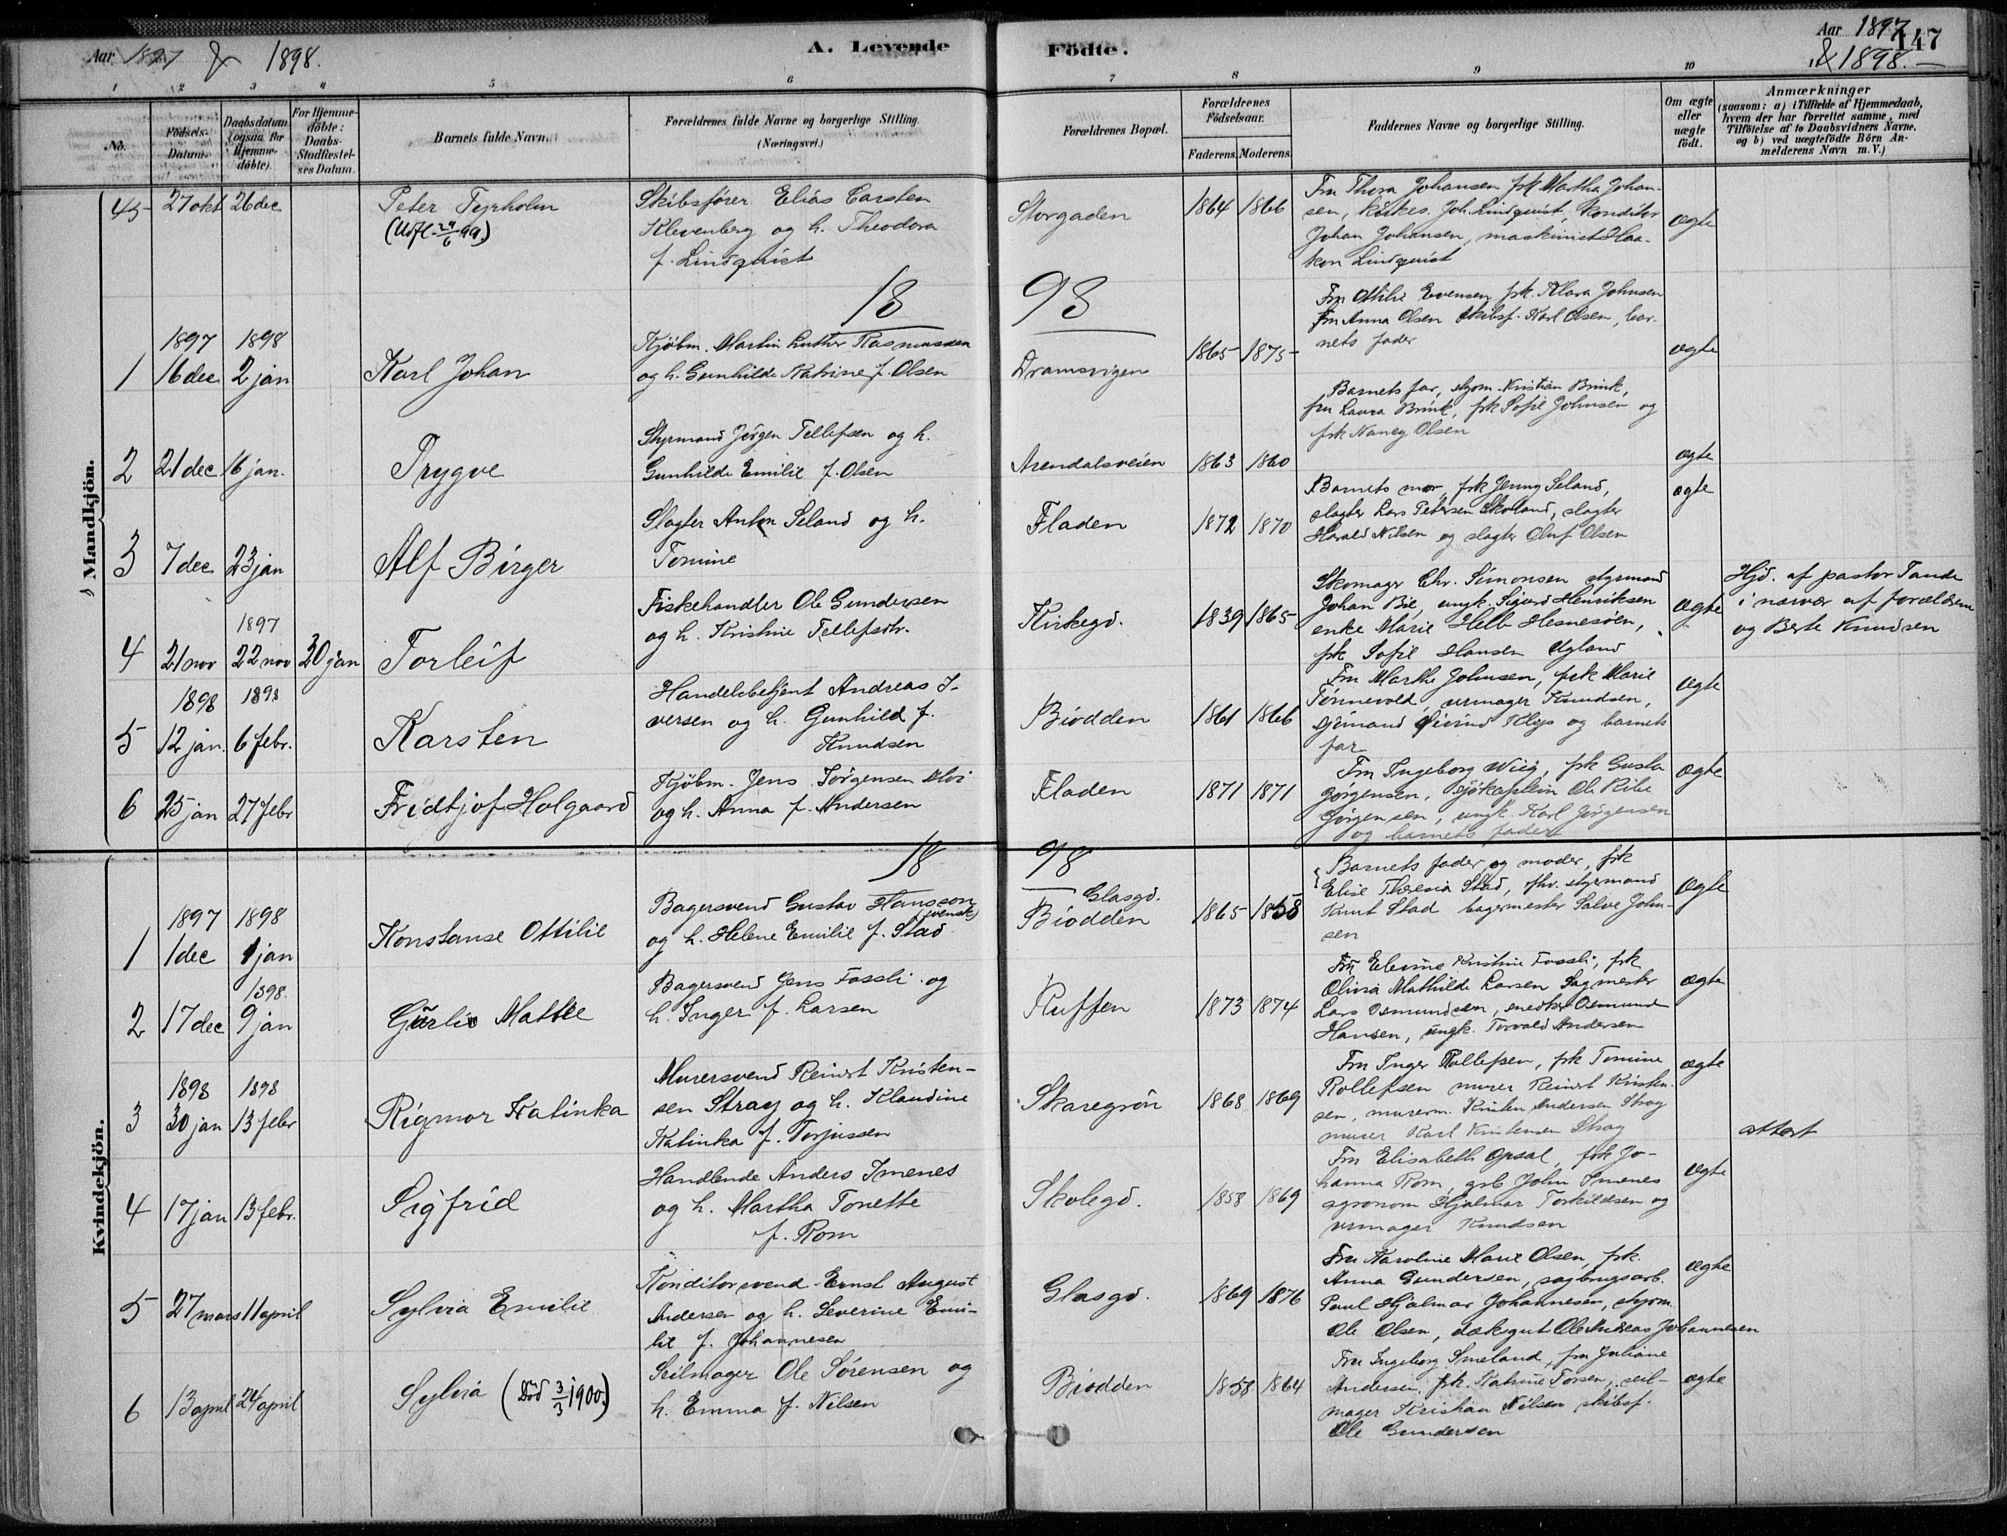 Aar 1897 & 1898.
A. Levende
Födte.
Aar 1897
147
& 1898.
1 2 3 4 5 6 7 8 9 10
No.
Födsels-Datum.
Daabsdatum (ogsaa for Hjemmedöbte).
For Hjemmedöbte: Daabs-Stadfæstelses Datum.
Barnets fulde Navn.
Forældrenes fulde Navne og borgerlige Stilling.
(Næringsvei.)
Forældrenes Bopæl.
Forældrenes Födselsaar.
Faderens. Moderens.
Faddernes Navne og borgerlige Stilling.
Om ægte eller uægte födt.
Anmærkninger
(saasom: a) i Tilfælde af Hjemmedaab, hvem der har forrettet samme, med Tilföielse af to Daabsvidners Navne. og b) ved uægtefödte Börn Anmelderens Navn m. V.)
Mandkjön.
45 27 okt 26 dec
Peter Tyrholm
Skibsfører Elias Carsten
Klevenberg og h. Theodora
f. Lindquist
Storgaden 1864 1866
Fru Thora Johansen frk Martha Johan-
sen, Joh. Lindquist, konditor
Johan Johansen, maskinist Haa-
kon Lindquist
ægte
18 98
1897 1898
1 16 dec 2 jan
Karl Johan
Kjøbm. Martin Luther Rasmussen
og h. Gunhilde Katrine f. Olsen
Dramsvigen 1865 1875
Fru Ottilie Evensen frk. Klara Johnsen
Fru Anna Olsen skibsf. Karl Olsen, bar-
nets fader
ægte
2 21 dec 16 jan.
Trygve
Styrmand Jørgen Tellefsen og h.
Gunhilde Emilie f. Olsen
Arendalsveien 1863 1860
Barnets far, styrm. Kristian Brink,
fru Laura Brink, frk Sofie Johnsen og
frk Nancy Olsen
ægte
3 7 dec 23 jan
Alf Birger
Slagter Anton Seland og h.
Tomine
Fladen 1872 1870
Barnets mor, frk Jenny Seland,
slagter Lars Petersen Skolland, slagter
Harald Nilsen og slagter Oluf Olsen
ægte
1897
4 21 nov 22 nov 30 jan
Torleif
Fiskehandler Ole Gundersen
og h. Kristine Tellefsdtr.
Kirkegd. 1839 1865
Skomager Chr. Simonsen styrmand
Johan Bie, ungk. Sigurd Henriksen
enke Marie Helb Hesnesøen,
frk Sofie Hansen Ugland
ægte
Hjd. af pastor Tande
i nærvær af forældrene
og Berte Knudsen
1898 1898
5 12 jan. 6 febr.
Karsten
Handelsbetjent Andreas I-
versen og h. Gunhild f.
Knudsen
Biodden 1861 1866
Fru Marthe Johnsen, frk Marie
Tønnevold, urmager Knudsen,
og barnets
far
ægte
6 25 jan 27 febr
Fridtjof Holgaard
Kjøbm. Jens Jørgensen
og h. Anna f. Andersen
Fladen 1871 1871
Fru Ingeborg Wiig, frk Gusta
Jørgensen, sjökaptein Ole Ribe
Jørgensen, ungk. Karl Jørgensen
og barnets fader
ægte
Kvindekjön.
18 98
1897 1898
1 1 dec 1 jan
Konstanse Ottilie
Bagersvend Gustav Hansson
(svensk)
og h. Helene Emilie f. Stad
Glasgd.
Biodden 1865 1858
Barnets fader og moder, frk
Elise Theresia Stad, fhv. styrmand
Knut Stad bagermester Salve John-
sen
ægte
1898.
2 17 dec 9 jan
Gurli Matte
Bagersvend Jens Fossli og
h. Inger f. Larsen
Ruffen 1873 1874
Fru Elevine Kristine Fossli, frk
Olivia Mathilde Larsen Sagmester
Lars Osmundsen, snedker Osmund
Hansen, ungk. Torvald Andersen
ægte
1898 1898
3 30 jan 13 febr
Rigmor Katinka
Murersvend Reinert Kristen-
sen Stray og h. Klaudine
Katinka f. Torjussen
Skaregrøn 1868 1869
Fru Inger Rollefsen, frk Tomine
Rollefsen murer Reinert Kristen-
sen, murerm. Kristen Andersen Stray
murer Karl Kristensen Stray
ægte
attest
4 17 jan 13 febr.
Sigfrid
Handlende Anders Imenes
og h. Martha Tonette
f. Rom
Skolegd. 1858 1869
Fru Elisabeth Opsal, frk Jo-
hanna Rom, grb John Imenes
agronom Hjalmar Torkildsen og
urmager Knudsen
ægte
5 27 mars 11 april
Sylvia Emilie
Konditorsvend Ernst August
Andersen og h. Severine Emi-
lie f. Johannesen
Glasgd. 1869 1876
Fru Karoline Marie Olsen, frk.
Anna Gundersen, sagbrugsarb.
Paul Hjalmar Johannesen, styrm.
Ole Olsen, dæksgut Ole Andreas Johannesen
ægte
6 13 april 24 april
Sylvia (Död 3/3 1900.)
Seilmager Ole Sørensen og
h. Emma f. Nilsen
Biodden 1858 1864
Fru Ingeborg Smeland, fru Juliane
Andersen, frk. Katrine Torsen, seil-
mager Kristian Nilsen skibsf.
Ole Gundersen
ægte